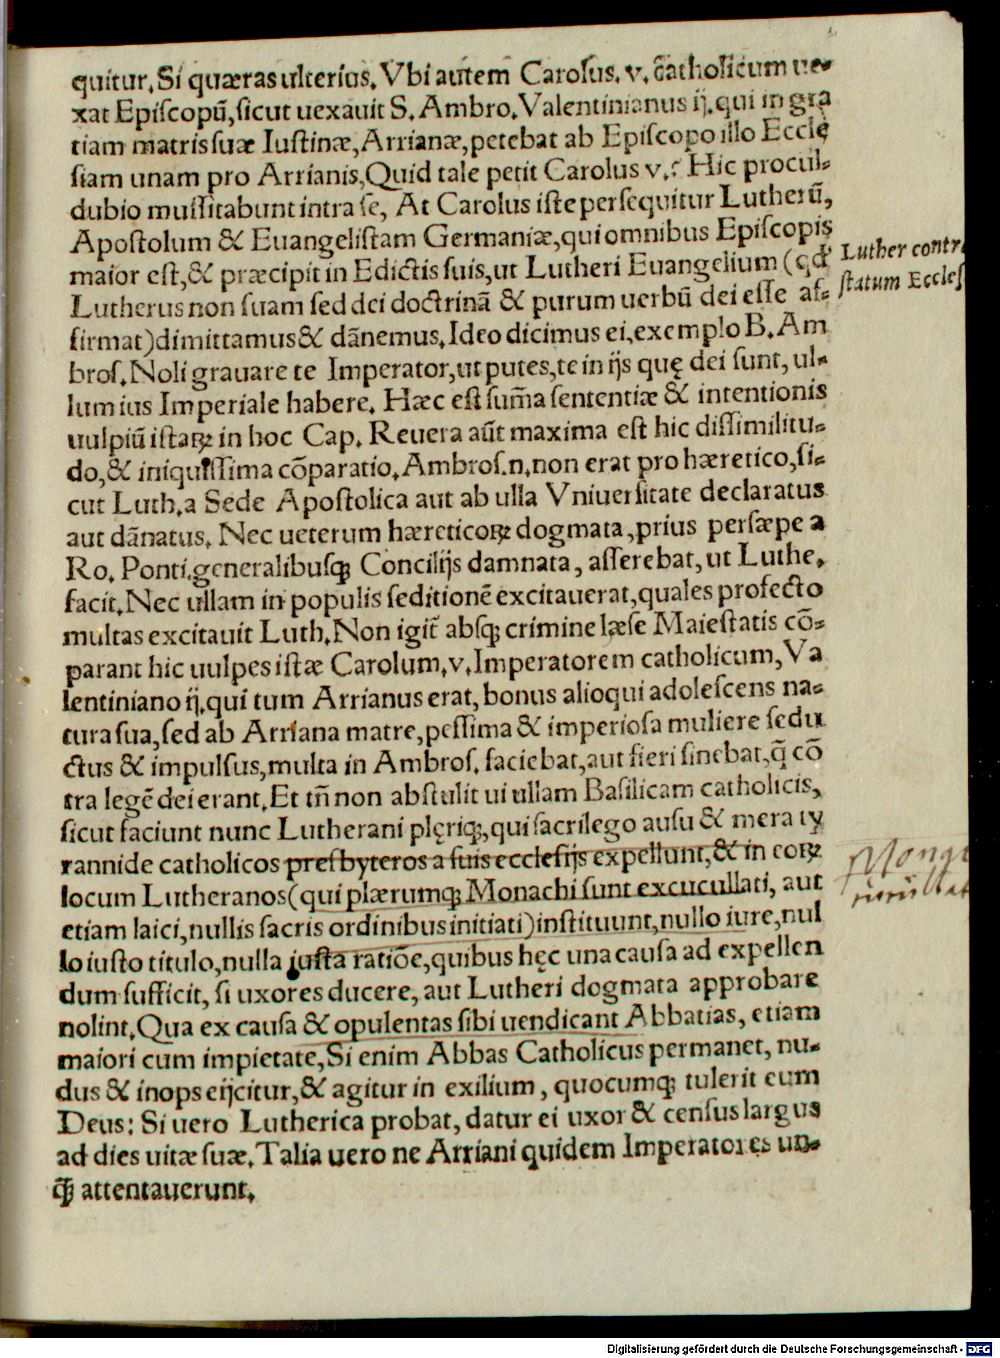 quitur. Si quæras ulterius. Vbi aũtem Carolus. v. catholicum ue-
xat Episcopũ, sicut uexauit S. Ambro. Valentinianus ij. qui in gra
tiam matris suæ Iustinæ, Arrianæ, petebat ab Episcopo illo Ecclę
siam unam pro Arrianis, Quid tale petit Carolus v.? Hic procul-
dubio mussitabunt intra se, At Carolus iste persequitur Lutherũ,
Apostolum & Euangelistam Germaniæ, qui omnibus Episcopis
maior est, & præcipit in Edictis suis, ut Lutheri Euangelium (qđ
Luther contr
statum Eccles
Lutherus non suam sed dei doctrinã & purum uerbũ dei esse as-
firmat) dimittamus & dãnemus. Ideo dicimus ei, exemplo B. Am
bros. Noli grauare te Imperator, ut putes, te in ijs quę dei sunt, ul-
lum ius Imperiale habere. Hæc est sum̃a sententiæ & intentionis
uulpiũ istaꝝ in hoc Cap. Reuera aũt maxima est hic dissimilitu-
do, & iniquissima cõparatio. Ambros. n. non erat pro hæretico, si-
cut Luth. a Sede Apostolica aut ab ulla Vniuersitate declaratus
aut dãnatus. Nec ueterum hæreticoꝝ dogmata, prius persæpe a
Ro. Ponti. generalibusq; Concilijs damnata, asserebat, ut Luthe.
facit. Nec ullam in populis seditionẽ excitauerat, quales profecto
multas excitauit Luth. Non igit̃ absq; crimine læse Maiestatis cõ-
parant hic uulpes istæ Carolum. v. Imperatorem catholicum, Va
lentiniano ij. qui tum Arrianus erat, bonus alioqui adolescens na-
tura sua, sed ab Arriana matre, pessima & imperiosa muliere sedu
ctus & impulsus, multa in Ambros. faciebat, aut fieri sinebat, q̃ cõ
tra legẽ dei erant. Et tñ non abstulit ui ullam Basilicam catholicis,
sicut faciunt nunc Lutherani plęriq;, qui sacrilego ausu & mera ty
rannide catholicos presbyteros a suis ecclesijs expellunt, & in eoꝝ
locum Lutheranos (qui plærumq; Monachi sunt excucullati, aut
etiam laici, nullis sacris ordinibus initiati) instituunt, nullo iure, nul
lo iusto titulo, nulla iusta ratiõe, quibus hęc una causa ad expellen
dum sufficit, si uxores ducere, aut Lutheri dogmata approbare
nolint. Qua ex causa & opulentas sibi uendicant Abbatias, etiam
maiori cum impietate, Si enim Abbas Catholicus permanet, nu-
dus & inops eijcitur, & agitur in exilium, quocumq; tulerit eum
Deus: Si uero Lutherica probat, datur ei uxor & census largus
ad dies uitæ suæ. Talia uero ne Arriani quidem Imperatores un-
q̃ attentauerunt.
Digitalisierung gefördert durch die Deutsche Forschungsgemeinschaft - DFG